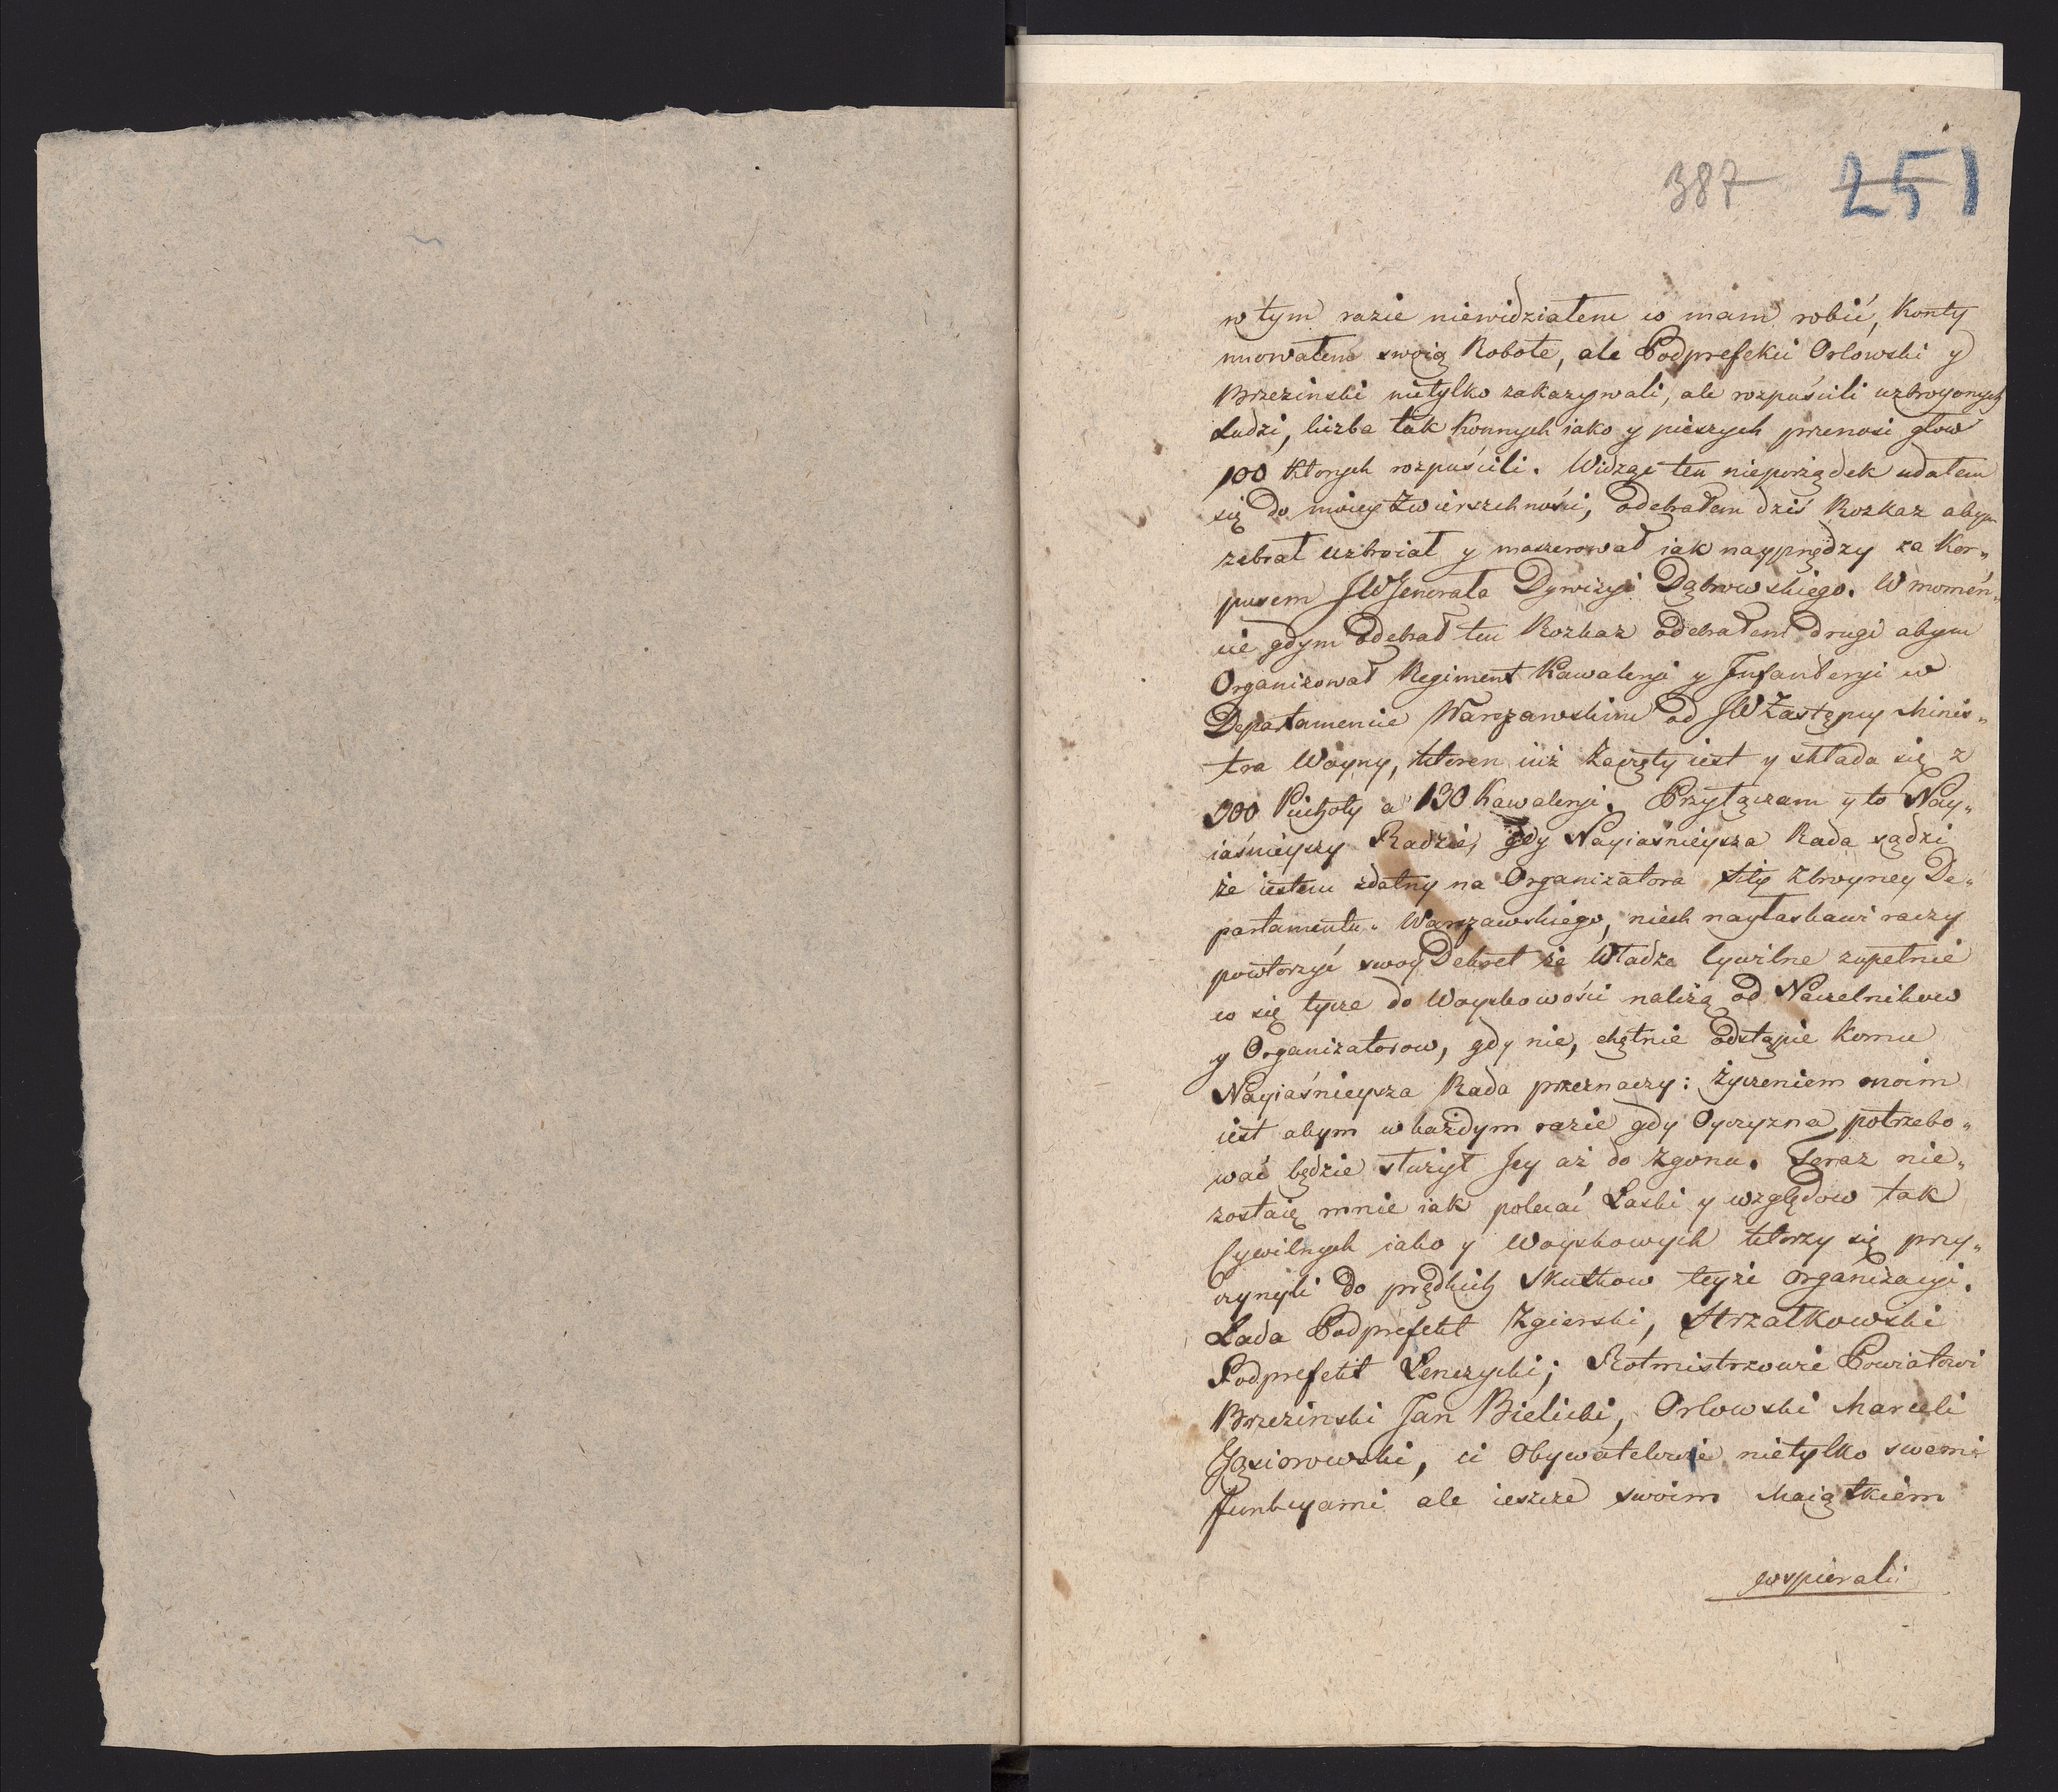 387 251
w tym razie niewidziałem co mam robić, Konty
nuowałem swoią Robotę, ale Podprefekci Orłowski y
Brzezinski nietylko zakazywali, ale rozpuścili uzbroyonych
Ludzi, liczba tak Konnych iako y pieszych przenosi głow
100 ktorych rozpuścili. Widząc ten nieporządek udałem
się do moiey Zwierszchności, odebrałem dziś Rozkaz abym
zebrał uzbroiał y maszerował iak nayprędzy za Kor„
pusem JW Jenerała Dywizyi Dąbrowskiego. W momen„
cie gdym odebrał ten Rozkaz odebrałem drugi abym
Organizował Regiment Kawaleryi y Infanteryi w
Departamencie Warszawskim od JW Zastępcy Minis„
tra Woyny, ktoren iuż Zaczęty iest y składa się z
300 Piechoty a 130 Kawaleryi. Przyłączam y to Nay„
iaśnieyszy Radzie, gdy Nayiaśnieysza Rada sądzi
że iestem zdatny na Organizatora siły zbroyney De„
partamentu Warszawskiego, niech nayłaskawi raczy
powtorzyć swoy Dekret że Władze Cywilne zupełnie
co się tycze do Woyskowości należą od Naczelnikow
y Organizatorow, gdy nie, chętnie odstąpie komu
Nayiaśnieysza Rada przeznaczy: życzeniem moim
iest abym w każdym razie gdy Oyczyzna potrzebo„
wać będzie służył Jey aż do Zgonu. Teraz nie„
zostaię mnie iak polecać Łaski y względow tak
Cywilnych iako y Woyskowych ktorzy się przy„
czynyli do prędkich Skutkow teyże organizacyi.
Łada Podprefekt Zgierski, Strzałkowski
Podprefekt Łenczycki; Rotmistrzowie Powiatowi
Brzezinski Jan Bielicki, Orłowski Marceli
Gąsiorowski, ci Obywatelowie nietylko swemi
funkcyami ale ieszcze swoim Maiątkiem
wspierali